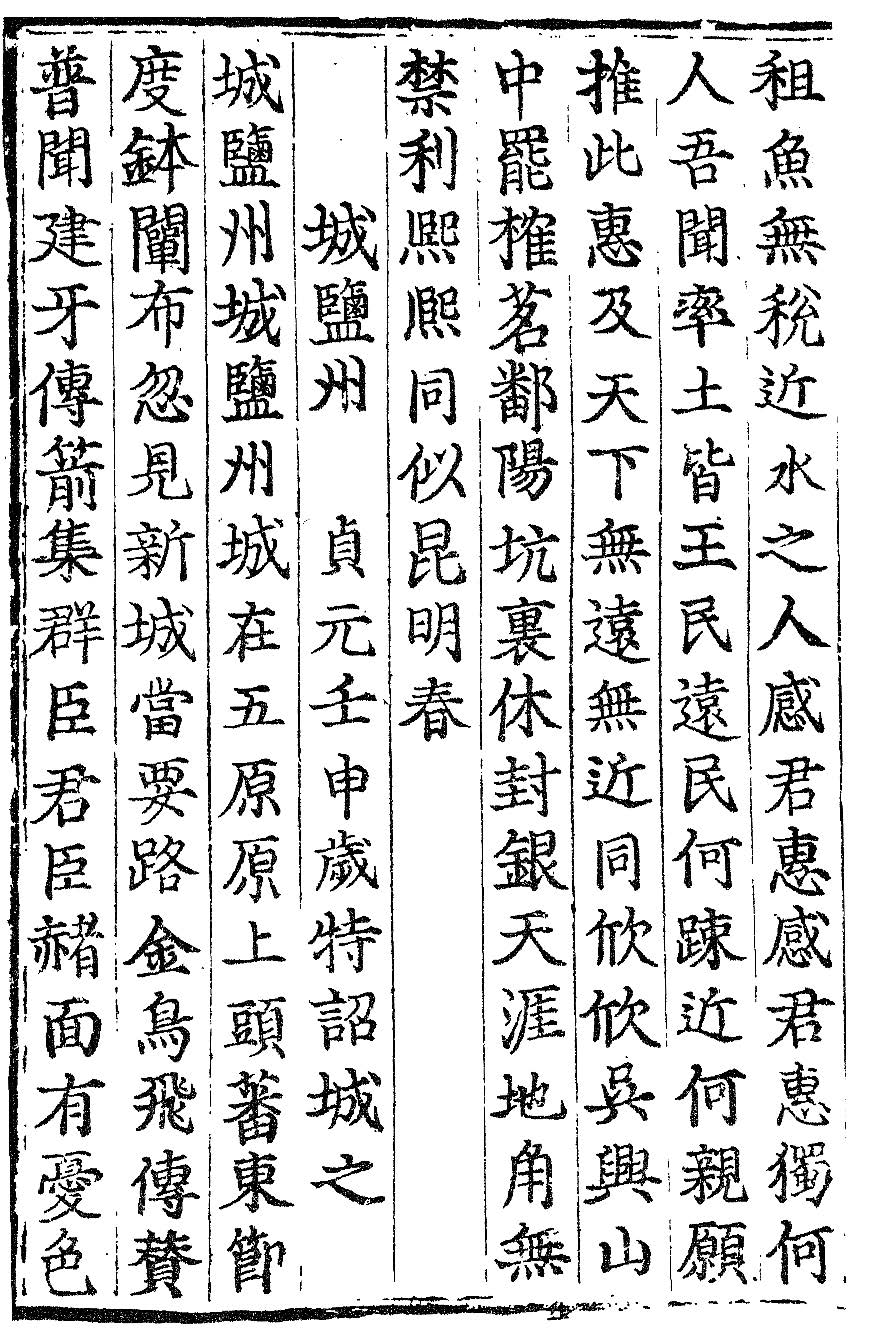 租魚無稅近水之人感君惠感君惠獨何
人吾聞率土皆王民遠民何踈近何親願
推此惠及天下無遠無近同欣欣吳興山
中罷榷茗鄱陽坑裏休封銀天涯地角無
禁利熈熈同似昆明春
城鹽州　貞元壬申歲特詔城之
城鹽州城鹽州城在五原原上頭蕃東節
度鉢闡布忽見新城當要路金鳥飛傳賛
普聞建牙傳箭集群臣君臣赭面有憂色